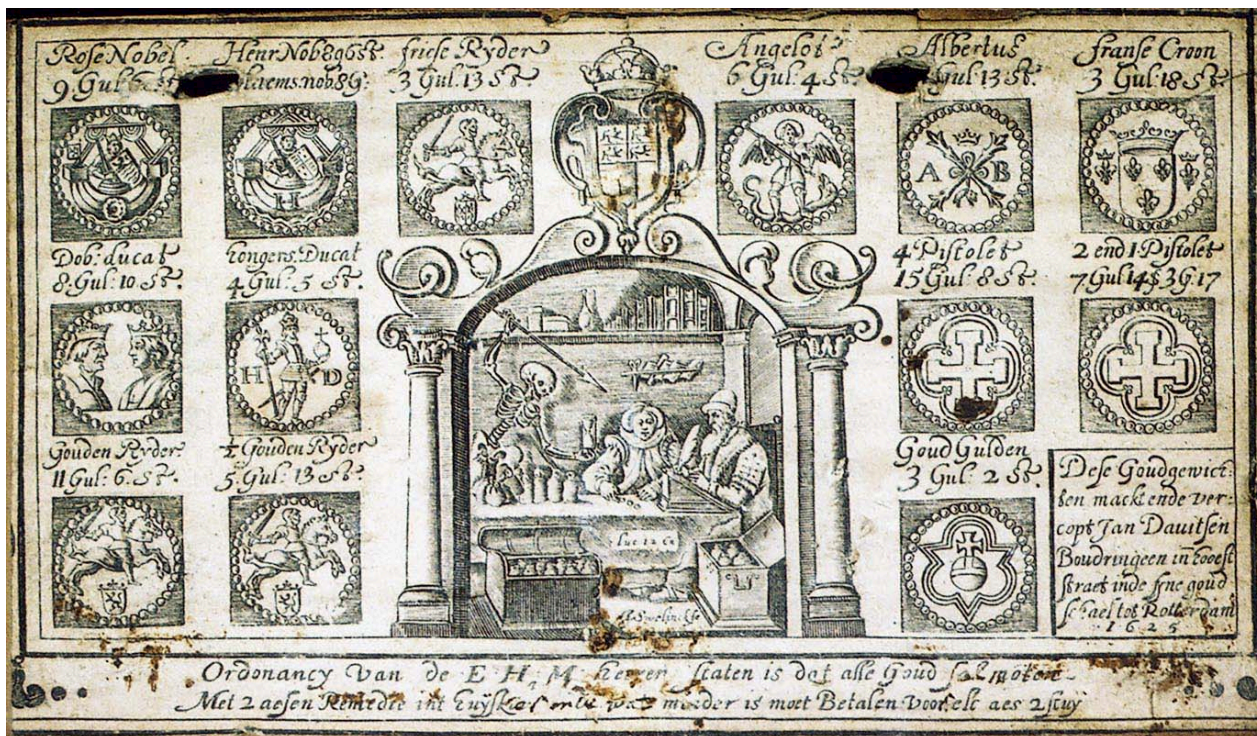 Rose Nobel
9. Gul 6 St
Henr Nob 896 St.
vlaems. nob 89:
friese Ryder
3 Gul: 13 St:
Angelot
6 Gul: 4 St
Albertus
Gul: 13 St.
franse Croon
3 Gul: 18 St
H
A B
Dob: ducat
8. Gul: 10. St.
hongers: Ducat
4 Gul: 5 St:
4 Pistolet
15 Gul: 8 St.
2 end 1 Pistolet
7. Gul 14 § 3 G: 17
H D
Gouden Ryder
11 Gul: 6. St.
½ Gouden Ryder
5. Gul: 13 St:
Goud Gulden
3 Gul: 2 St:
Dese Goudgewich:
ten mackt ende ver:
copt Jan Davitsen
Boudringeen in
straet inde fyne goud
schael tot Rotterdam
1625
Luc 12
Swelinck
Ordonancy van de E H. M heeren staten is dat alle Goud sal moten
Met 2 aesen Remedie int minder is moet Betalen voor elc aes 2 stuy